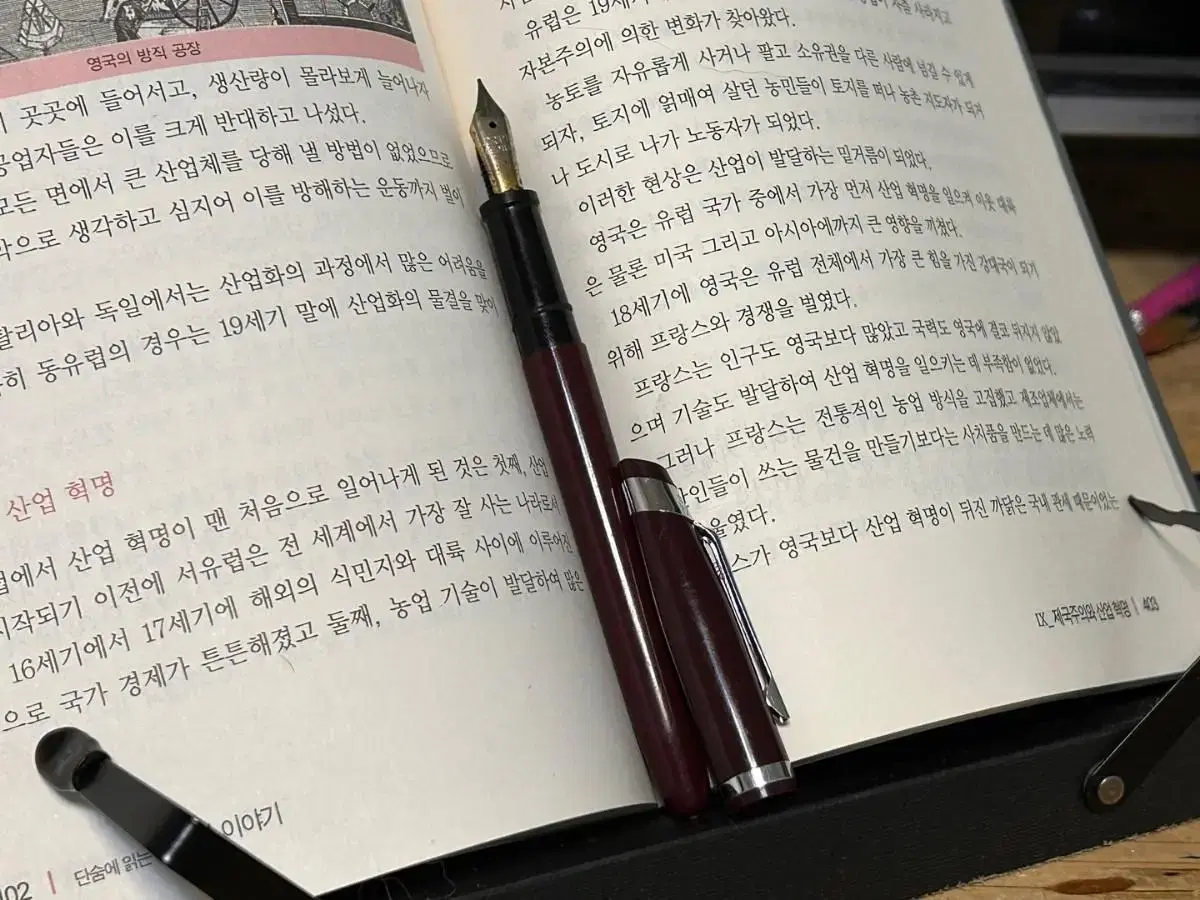 영국의 방직 공장
곳곳에 들어서고, 생산량이 몰라보게 늘어나자
공업자들은 이를 크게 반대하고 나섰다.
모든 면에서 큰 산업체를 당해 낼 방법이 없었으므로
생각하고 심지어 이를 방해하는 운동까지 벌이
탈리아와 독일에서는 산업화의 과정에서 많은 어려움을
히 동유럽의 경우는 19세기 말에 산업화의 물결을 맞이
산업 혁명
럽에서 산업 혁명이 맨 처음으로 일어나게 된 것은 첫째, 산업
시작되기 이전에 서유럽은 전 세계에서 가장 잘 사는 나라로서
16세기에서 17세기에 해외의 식민지와 대륙 사이에 이루어진
으로 국가 경제가 튼튼해졌고 둘째, 농업 기술이 발달하여 많은
02 | 단숨에 읽는 이야기
유럽은 19세기
자본주의에 의한 변화가 찾아왔다.
농토를 자유롭게 사거나 팔고 소유권을 다른 사람에 넘길 수 있게
되자, 토지에 얽매여 살던 농민들이 토지를 떠나 농촌 지도자가 되거
나 도시로 나가 노동자가 되었다.
이러한 현상은 산업이 발달하는 밑거름이 되었다.
영국은 유럽 국가 중에서 가장 먼저 산업 혁명을 일으켜 이웃 대륙
은 물론 미국 그리고 아시아에까지 큰 영향을 끼쳤다.
18세기에 영국은 유럽 전체에서 가장 큰 힘을 가진 강대국이 되기
위해 프랑스와 경쟁을 벌였다.
프랑스는 인구도 영국보다 많았고 국력도 영국에 결코 뒤지지 않았
으며 기술도 발달하여 산업 혁명을 일으키는 데 부족함이 없었다.
그러나 프랑스는 전통적인 농업 방식을 고집했고 제조업체에서는
인들이 쓰는 물건을 만들기보다는 사치품을 만드는 데 많은 노력
울였다.
스가 영국보다 산업 혁명이 뒤진 까닭은 국내 관세 때문이었는
IX_제국주의와 산업 혁명 | 403